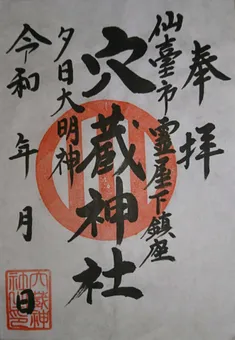 奉拝
仙臺市霊屋下鎮座
穴蔵神社
夕日大明神
令和 年 月 日